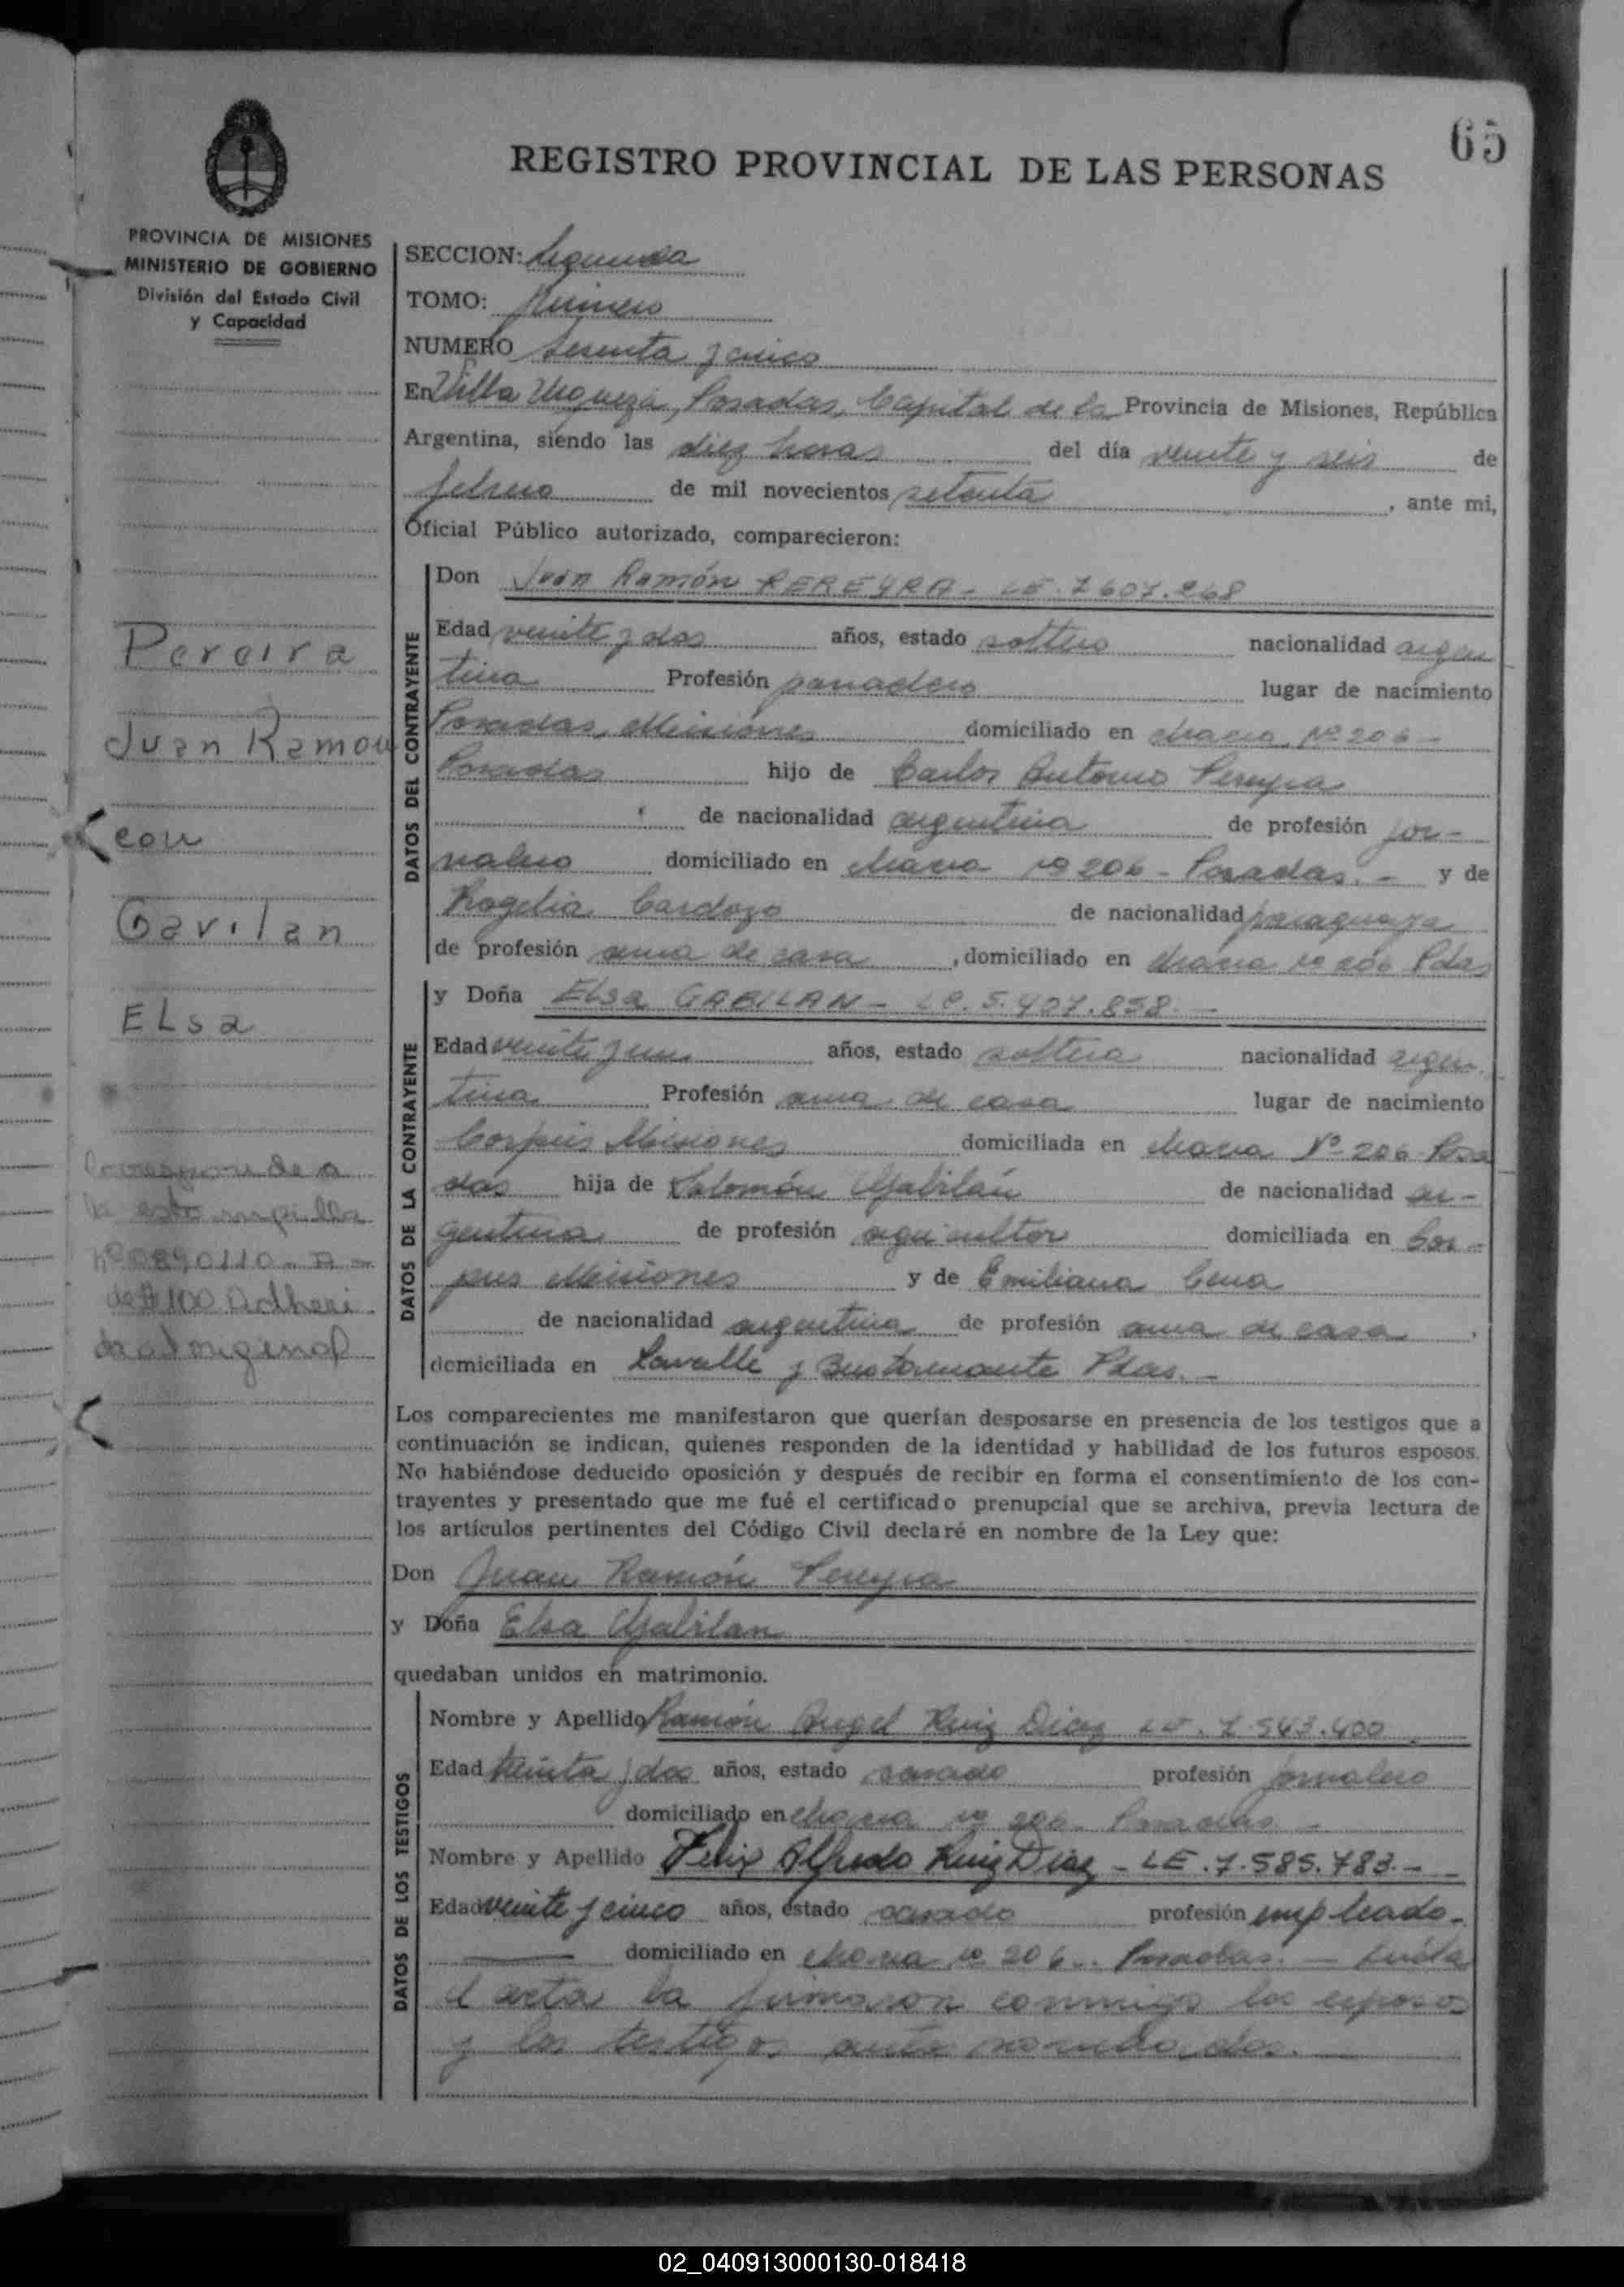 65
REGISTRO PROVINCIAL DE LAS PERSONAS
PROVINCIA DE MISIONES
MINISTERIO DE GOBIERNO
División del Estado Civil
y Capacidad
Pereira
Juan Ramon
con
Gavilan
ELsa
Corresponde a
la estampilla
nº0890110-A-
de $100 Adheri
da al original
SECCION: Segunda
TOMO: Primero
NUMERO Sesenta y cinco
En Villa Urquiza, Posadas, Capital de la Provincia de Misiones, República
Argentina, siendo las diez horas del día veinte y seis de
febrero de mil novecientos setenta, ante mi,
Oficial Público autorizado, comparecieron:
DATOS DEL CONTRAYENTE
Don Juan Ramón PEREYRA - LE. 7.607.268
Edad veinte y dos años, estado soltero nacionalidad argen
tina Profesión panadero lugar de nacimiento
Posadas, Misiones domiciliado en chacra Nº 206 -
Posadas hijo de Carlos Antonio Pereyra
de nacionalidad argentina de profesión jor-
nalero domiciliado en chacra nº 206 - Posadas. - y de
Rogelia Cardozo de nacionalidad paraguaya
de profesión ama de casa, domiciliado en chacra nº 206 Pdas
DATOS DE LA CONTRAYENTE
y Doña ELsa GABILAN - LC. 5.407.838. -
Edad veinte y un años, estado soltera nacionalidad argen
tina Profesión ama de casa lugar de nacimiento
Corpus Misiones domiciliada en chacra Nº 206 Posa
das hija de Salomón Gabilán de nacionalidad ar-
gentina de profesión agricultor domiciliada en Cor-
pus Misiones y de Emiliana Cena
de nacionalidad argentina de profesión ama de casa,
domiciliada en Lavalle y Bustamante Pdas. -
Los comparecientes me manifestaron que querían desposarse en presencia de los testigos que a
continuación se indican, quienes responden de la identidad y habilidad de los futuros esposos.
No habiéndose deducido oposición y después de recibir en forma el consentimiento de los con-
trayentes y presentado que me fué el certificado prenupcial que se archiva, previa lectura de
los artículos pertinentes del Código Civil declaré en nombre de la Ley que:
Don Juan Ramón Pereyra
y Doña Elsa Gabilan
quedaban unidos en matrimonio.
DATOS DE LOS TESTIGOS
Nombre y Apellido Ramón Angel Ruiz Diaz LE. 7.543.400
Edad treinta y dos años, estado casado profesión jornalero
domiciliado en chacra nº 206 - Posadas. -
Nombre y Apellido Felix Alfredo Ruiz Diaz - LE. 7.585.783. -
Edad veinte y cinco años, estado casado profesión empleado -
domiciliado en chacra nº 206 - Posadas. - Leída
el acta la firmaron conmigo los esposos
y los testigos ante nombrados.
02_040913000130-018418